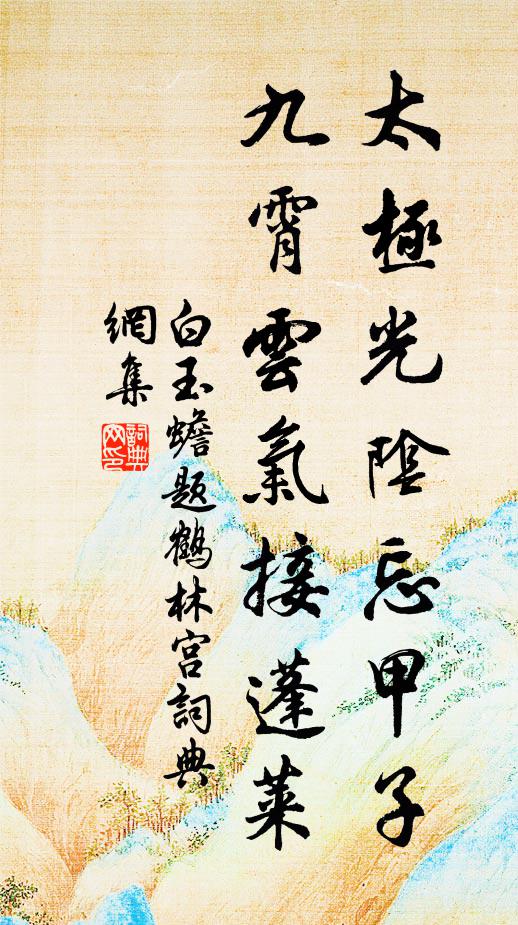 太極光陰忘甲子
九霄雲氣接蓬萊
白玉蟾題鶴林宮詞典
網集
詞典網印